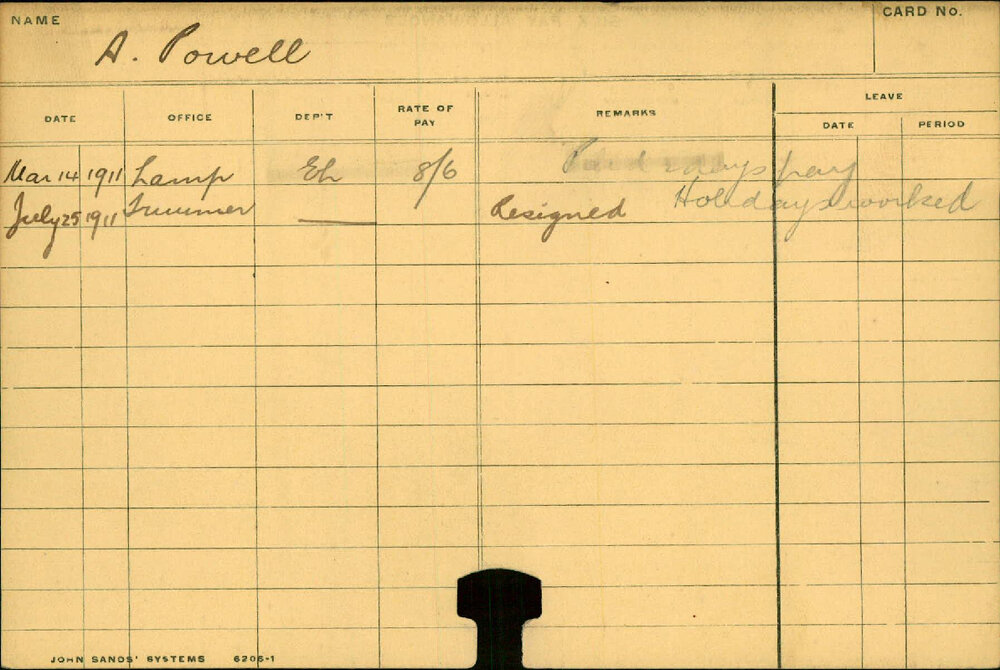 NAME
A. Powell
CARD No.
DATE OFFICE DEP'T RATE OF PAY REMARKS LEAVE
DATE PERIOD
Mar 14 1911 Lamp Eh 8/6 Paid 2 days pay
July 25 1911 Trimmer Resigned Holidays worked
JOHN SANDS' SYSTEMS 6206-1